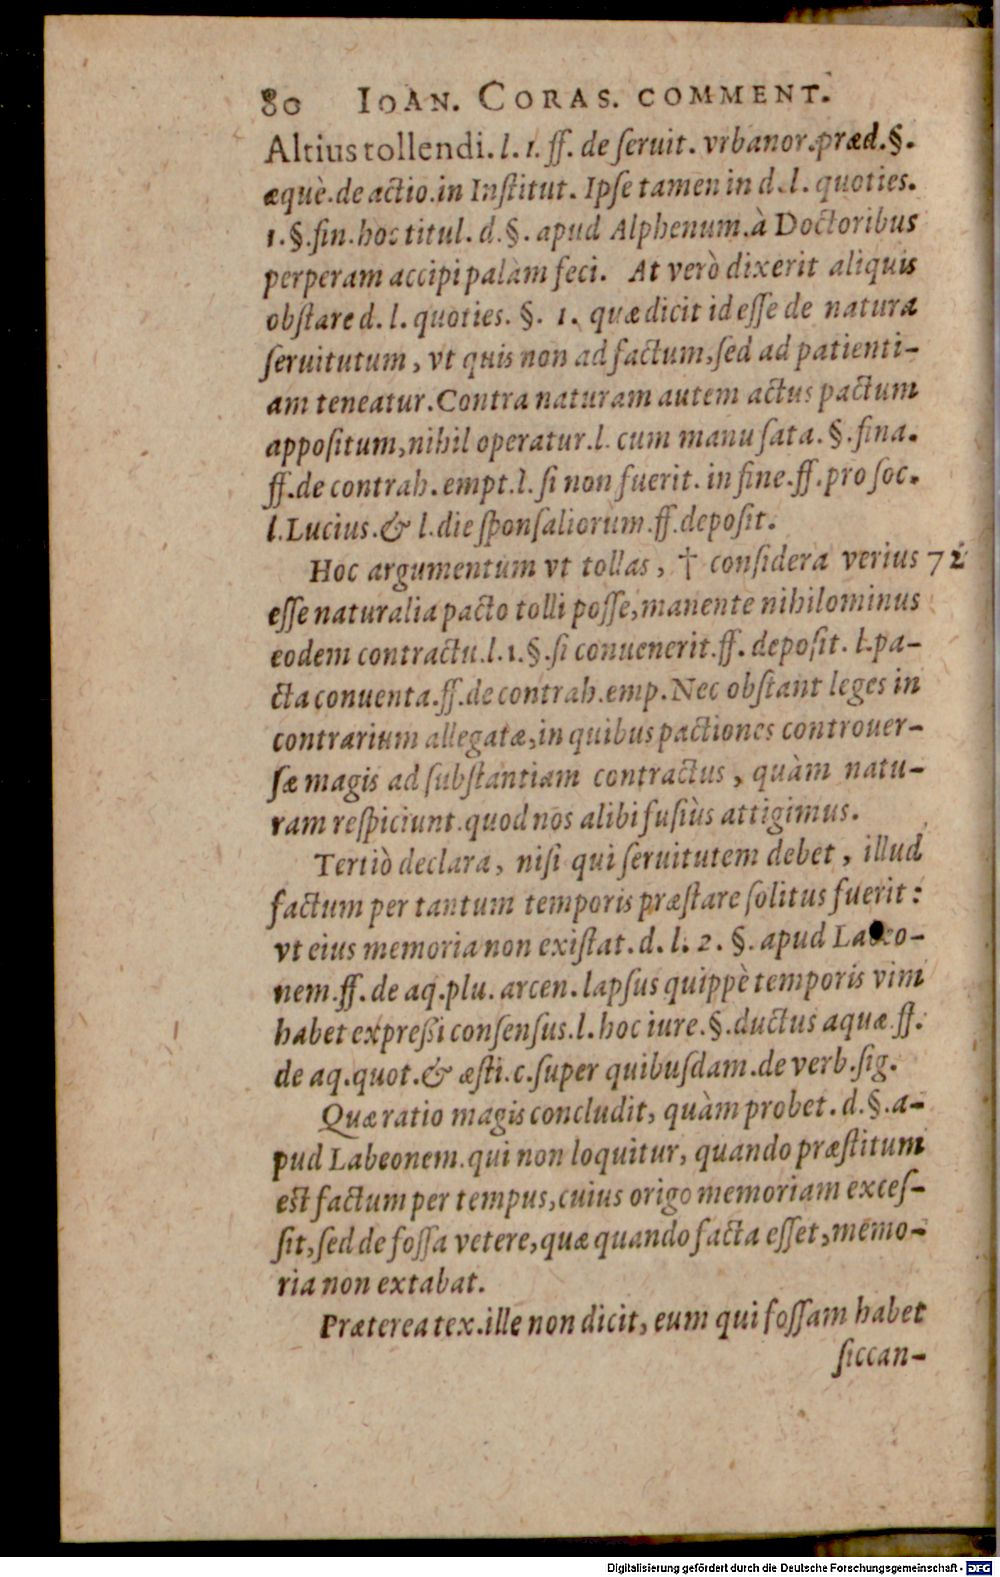 80 IOAN. CORAS. COMMENT.
Altius tollendi. l. 1. ff. de ſeruit. vrbanor. præd. §.
æquè. de actio. in Inſtitut. Ipſe tamen in d. l. quoties.
1. §. fin. hoc titul. d. §. apud Alphenum. à Doctoribus
perperam accipi palàm feci. At verò dixerit aliquis
obſtare d. l. quoties. §. 1. quæ dicit id eſſe de natura
ſeruitutum, vt quis non ad factum, ſed ad patienti-
am teneatur. Contra naturam autem actus pactum
appoſitum, nihil operatur. l. cum manu ſata. §. fina.
ff. de contrah. empt. l. ſi non fuerit. in fine. ff. pro ſoc.
l. Lucius. & l. die ſponſaliorum. ff. depoſit.
Hoc argumentum vt tollas, † conſidera verius 72
eſſe naturalia pacto tolli poſſe, manente nihilominus
eodem contractu. l. 1. §. ſi conuenerit. ff. depoſit. l. pa-
cta conuenta. ff. de contrah. emp. Nec obſtant leges in
contrarium allegatæ, in quibus pactiones controuer-
ſæ magis ad ſubſtantiam contractus, quàm natu-
ram reſpiciunt. quod nos alibi fuſiùs attigimus.
Tertiò declara, niſi qui ſeruitutem debet, illud
factum per tantum temporis præſtare ſolitus fuerit:
vt eius memoria non exiſtat. d. l. 2. §. apud Labeo-
nem. ff. de aq. plu. arcen. lapſus quippè temporis vim
habet expreßi conſenſus. l. hoc iure. §. ductus aquæ. ff.
de aq. quot. & æſti. c. ſuper quibuſdam. de verb. ſig.
Quæ ratio magis concludit, quàm probet. d. §. a-
pud Labeonem. qui non loquitur, quando præſtitum
eſt factum per tempus, cuius origo memoriam exceſ-
ſit, ſed de foſſa vetere, quæ quando facta eſſet, memo-
ria non extabat.
Præterea tex. ille non dicit, eum qui foſſam habet
ſiccan-
Digitalisierung gefördert durch die Deutsche Forschungsgemeinschaft - DFG